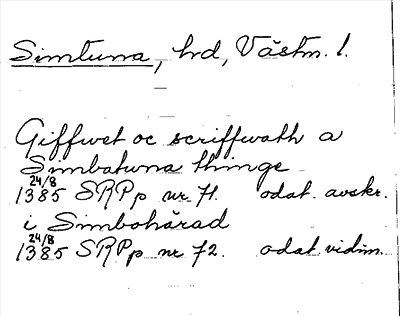 Simtuna, hrd, Västm. l.
Giffwet oc scriffwath a
Simbatuna thinge
24/8
1385 SRPp nr 71. odat. avskr.
i Simbohärad
24/8
1385 SRPp nr 72. odat. vidim.